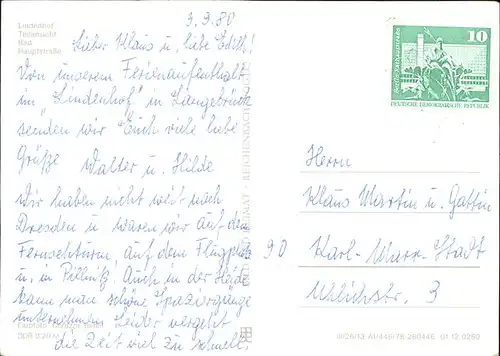 3.9.80
Lindenhof
Teilansicht
Bad
Hauptstraße
Lieber Klaus u. liebe Edith!
Von unserem Ferienaufenthalt
im "Lindenhof" in Langebrück
senden wir Euch viele liebe
Grüße Walter u. Hilde
Wir haben nicht weit nach
Dresden u. waren wir auf dem
Fernsehturm, auf dem Flugplatz
u. in Pillnitz. Auch in der Heide
kann man schöne Spaziergänge
unternehmen. Leider vergeht
die Zeit viel zu schnell.
10
DEUTSCHE DEMOKRATISCHE REPUBLIK
Herrn
Klaus Martin u. Gattin
90 Karl-Marx-Stadt
Uhlichstr. 3
REICHENBACH
III/26/13 01 12 0260